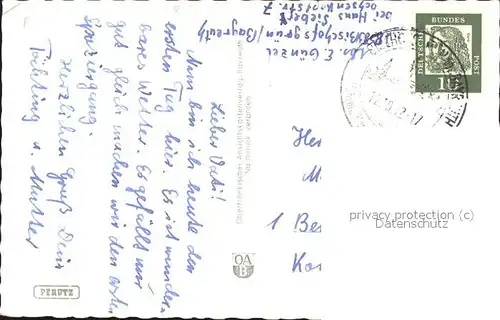 Abs. E. Günzel
Bischofsgrün/Bayreuth
bei Hans Sieber
Lieber Vati!
Nun bin ich heute den
ersten Tag hier. Es ist wunder-
bares Wetter. Es gefällt mir
gut gleich machen wir den ersten
Spaziergang.
Herzlichen Gruß Dein
u. Mutter
Nachdruck verboten
DEUTSCHE
BUNDES
POST
10
He
M
1 Be
Ka
privacy protection (c)
Datenschutz
OA
B
PERUTZ